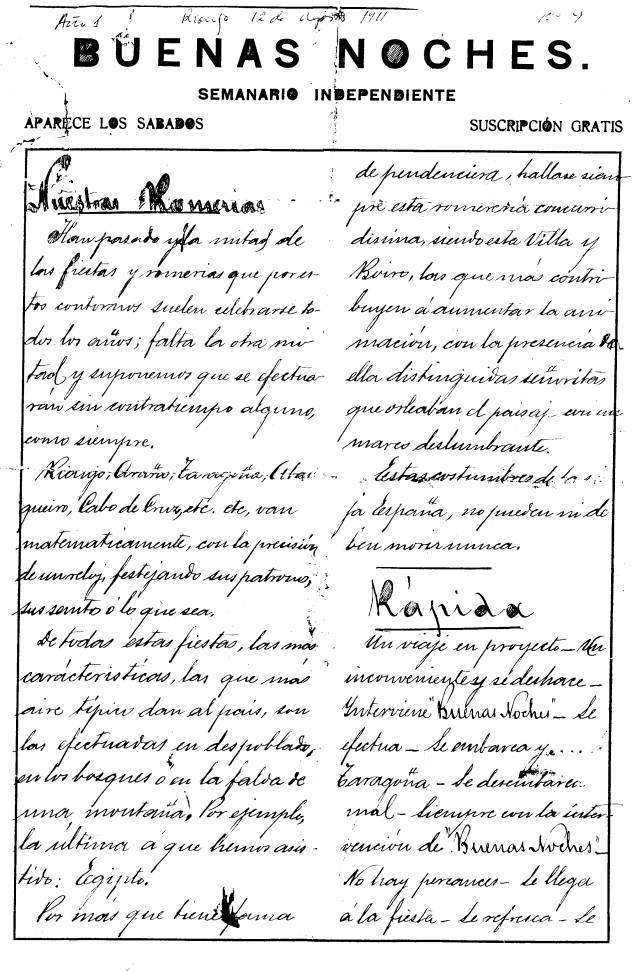 Año 1 Rianjo 12 de Agosto 1911 No 4
BUENAS NOCHES.
SEMANARIO INDEPENDIENTE
APARECE LOS SABADOS SUSCRIPCIÓN GRATIS
Nuestras Romerias
Han pasado ya la mitad de
las fiestas y romerias que por es-
tos contornos suelen celebrarse to-
dos los años; falta la otra mi-
tad y suponemos que se efectua-
rán sin contratiempo alguno,
como siempre.
Rianjo, Araño, Taragoña, Abai-
queiro, Cabo de Cruz, etc. etc, van
matematicamente, con la precisión
de un reloj, festejando sus patronos,
sus santo ó lo que sea.
De todas estas fiestas, las más
carácteristicas, las que más
aire típico dan al pais, son
las efectuadas en despoblado,
en los bosques ó en la falda de
una montaña. Por ejemplo,
la última á que hemos asis-
tido: Egipto.
Por más que tiene fama
de pendenciera, hallase siem
pre esta romerería concurri
disima, siendo esta Villa y
Boiro, las que más contri
buyen á aumentar la ani
mación, con la presencia de
ella distinguidas señoritas
que orleaban el paisaj con un
marco deslumbrante.
Estas costumbres de la
ja España, no pueden ni de
ben morir nunca.
Rápida
Un viaje en proyecto — Un
inconveniente y se deshace —
Interviene "Buenas Noches" — Se
efectua — Se embarca y....
Taragoña — Se desembarca
mal — Siempre con la inter-
vención de "Buenas Noches" —
No hay percances — Se llega
á la fiesta — Se refresca — Se